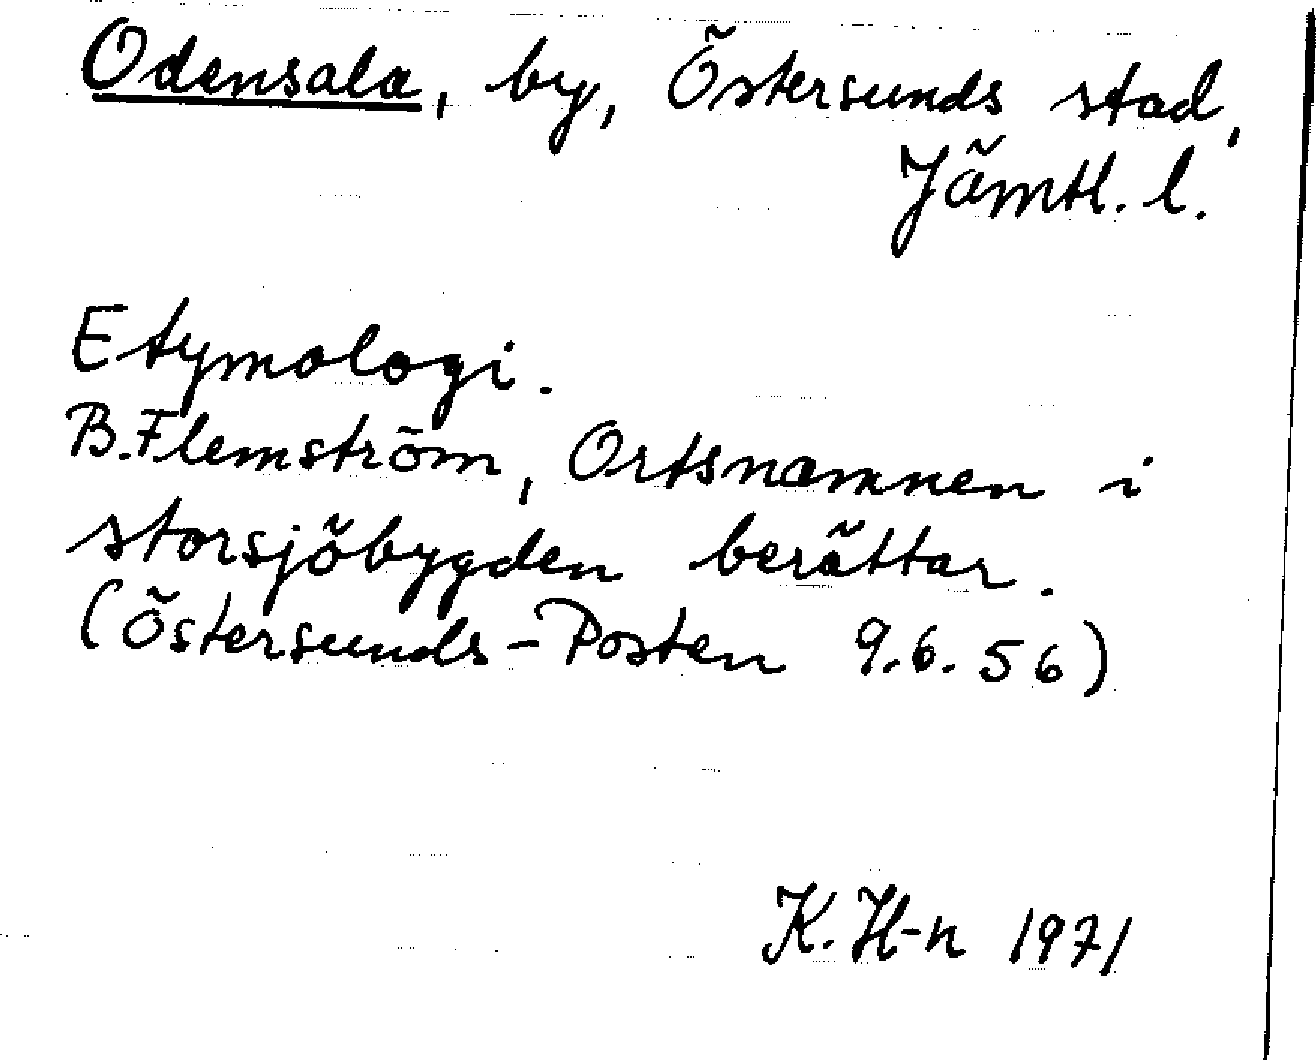 Odensala, by, Östersunds stad,
Jämtl. l.
Etymologi.
B. Flemström, Ortsnamnen i
storsjöbygden berättar.
(Östersunds-Posten 9.6.56)
K. H-n 1971